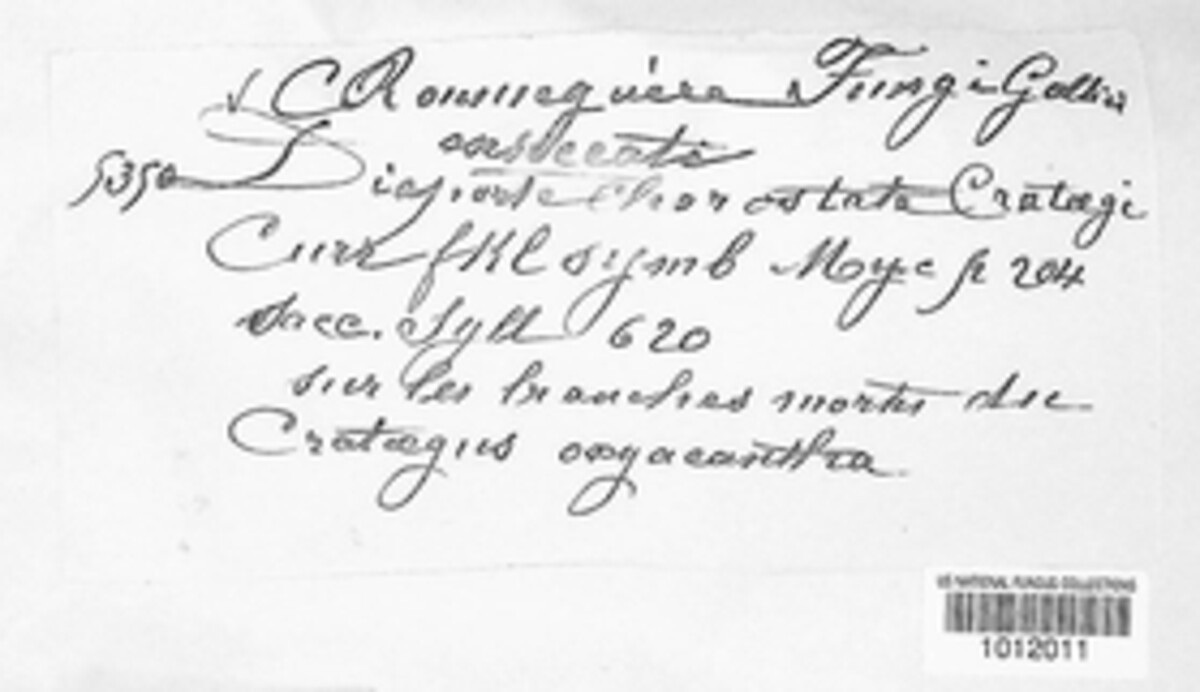 C Roumeguère Fungi Gallici
exsiccati
5350 Diaporte Chorostate Crataegi
Curr fKl symb Myc p 204
Sacc. Syll 620
sur les branches mortes du
Crataegus oxyacantha
US NATIONAL FUNGUS COLLECTIONS
1012011